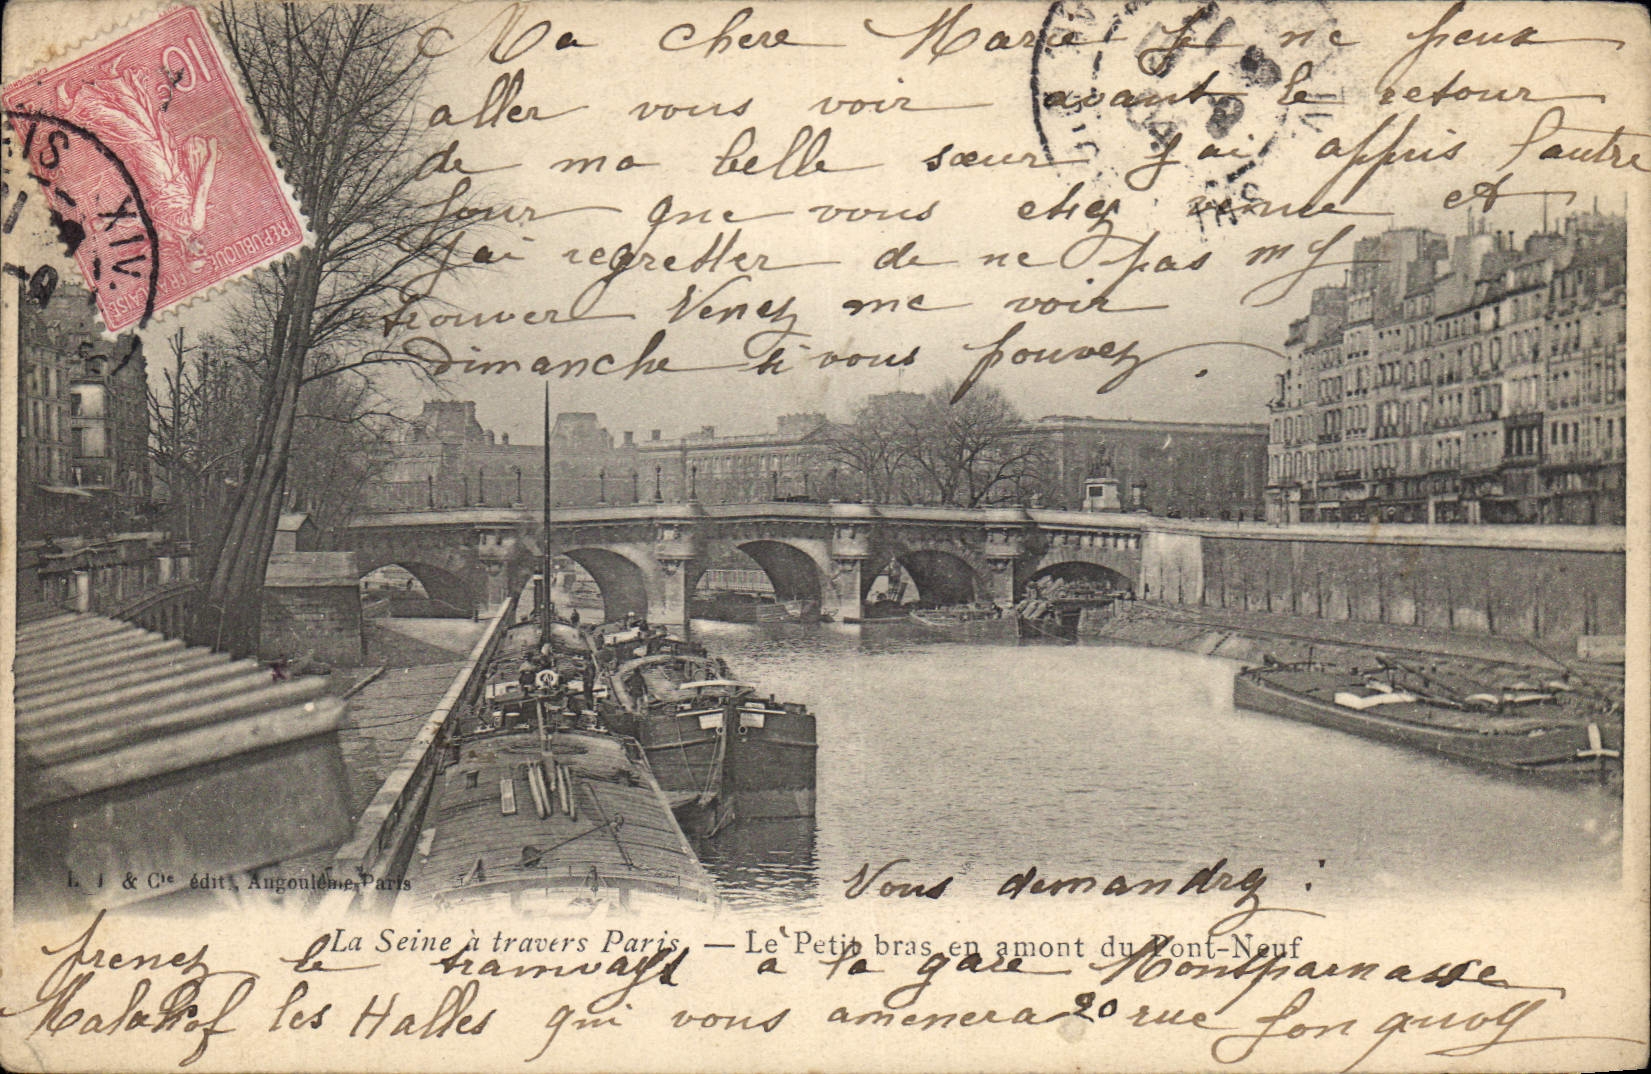 Ma chere Marie Je ne peux
aller vous voir avant le retour
de ma belle sœur J ai appris l'autre
jour que vous etiez venue et
J'ai regretter de ne pas my
trouver Venez me voir
Dimanche si vous pouvez .
10
REPUBLIQUE FRANÇAISE
& Cie édit., Angoulême-Paris
Vous demandrez :
La Seine à travers Paris — Le Petit bras en amont du Pont-Neuf
prenez le tramways a la gare Montparnasse
Malakof les Halles qui vous amenera 20 rue